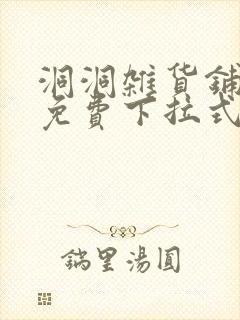 洞洞雜貨鋪
免費下拉式
鍋里湯圓